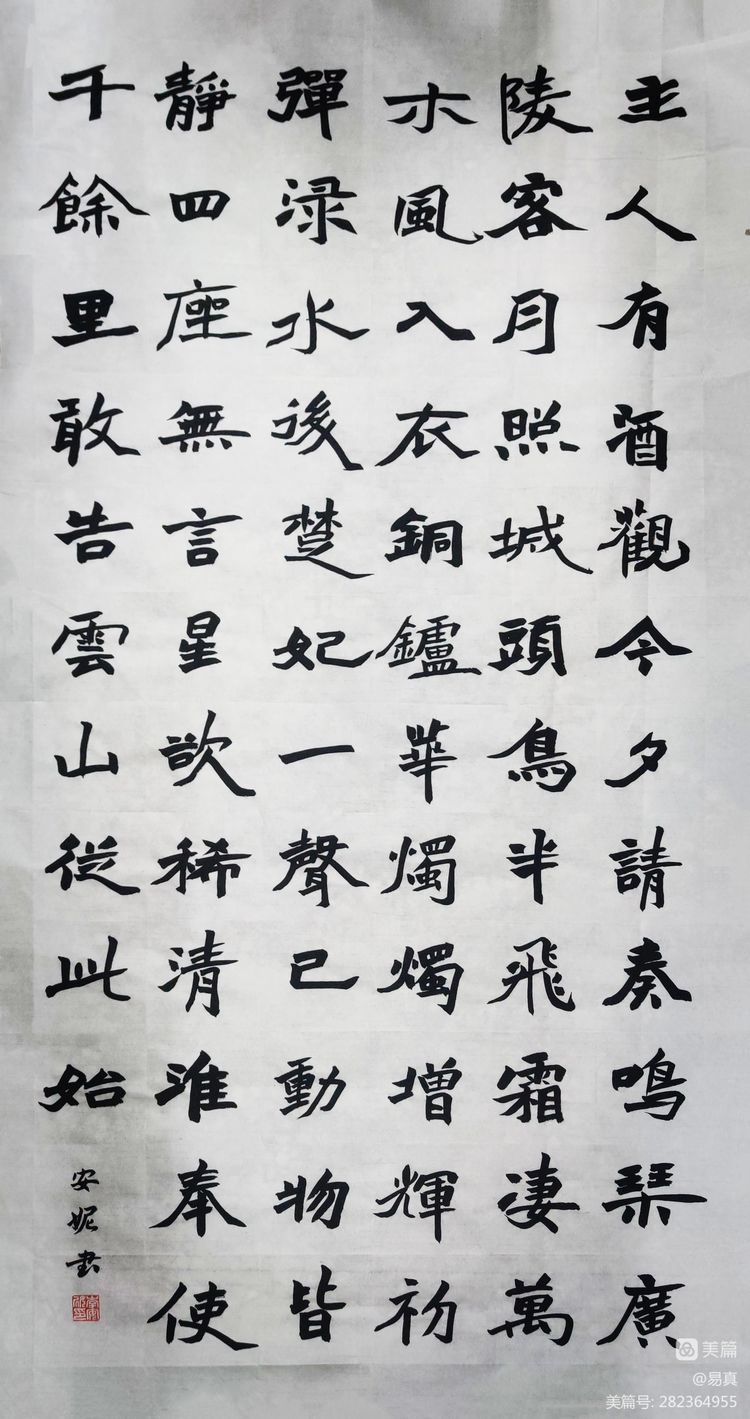 主人有酒觀今夕請奏鳴琹廣
陵客月照城頭烏半飛霜凄萬
木風入衣銅鑪華燭燭增輝初
彈渌水後楚妃一聲已動物皆
靜四座無言星欲稀清淮奉使
千餘里敢告雲山從此始
安妮书
美篇
@易真
美篇号: 282364955